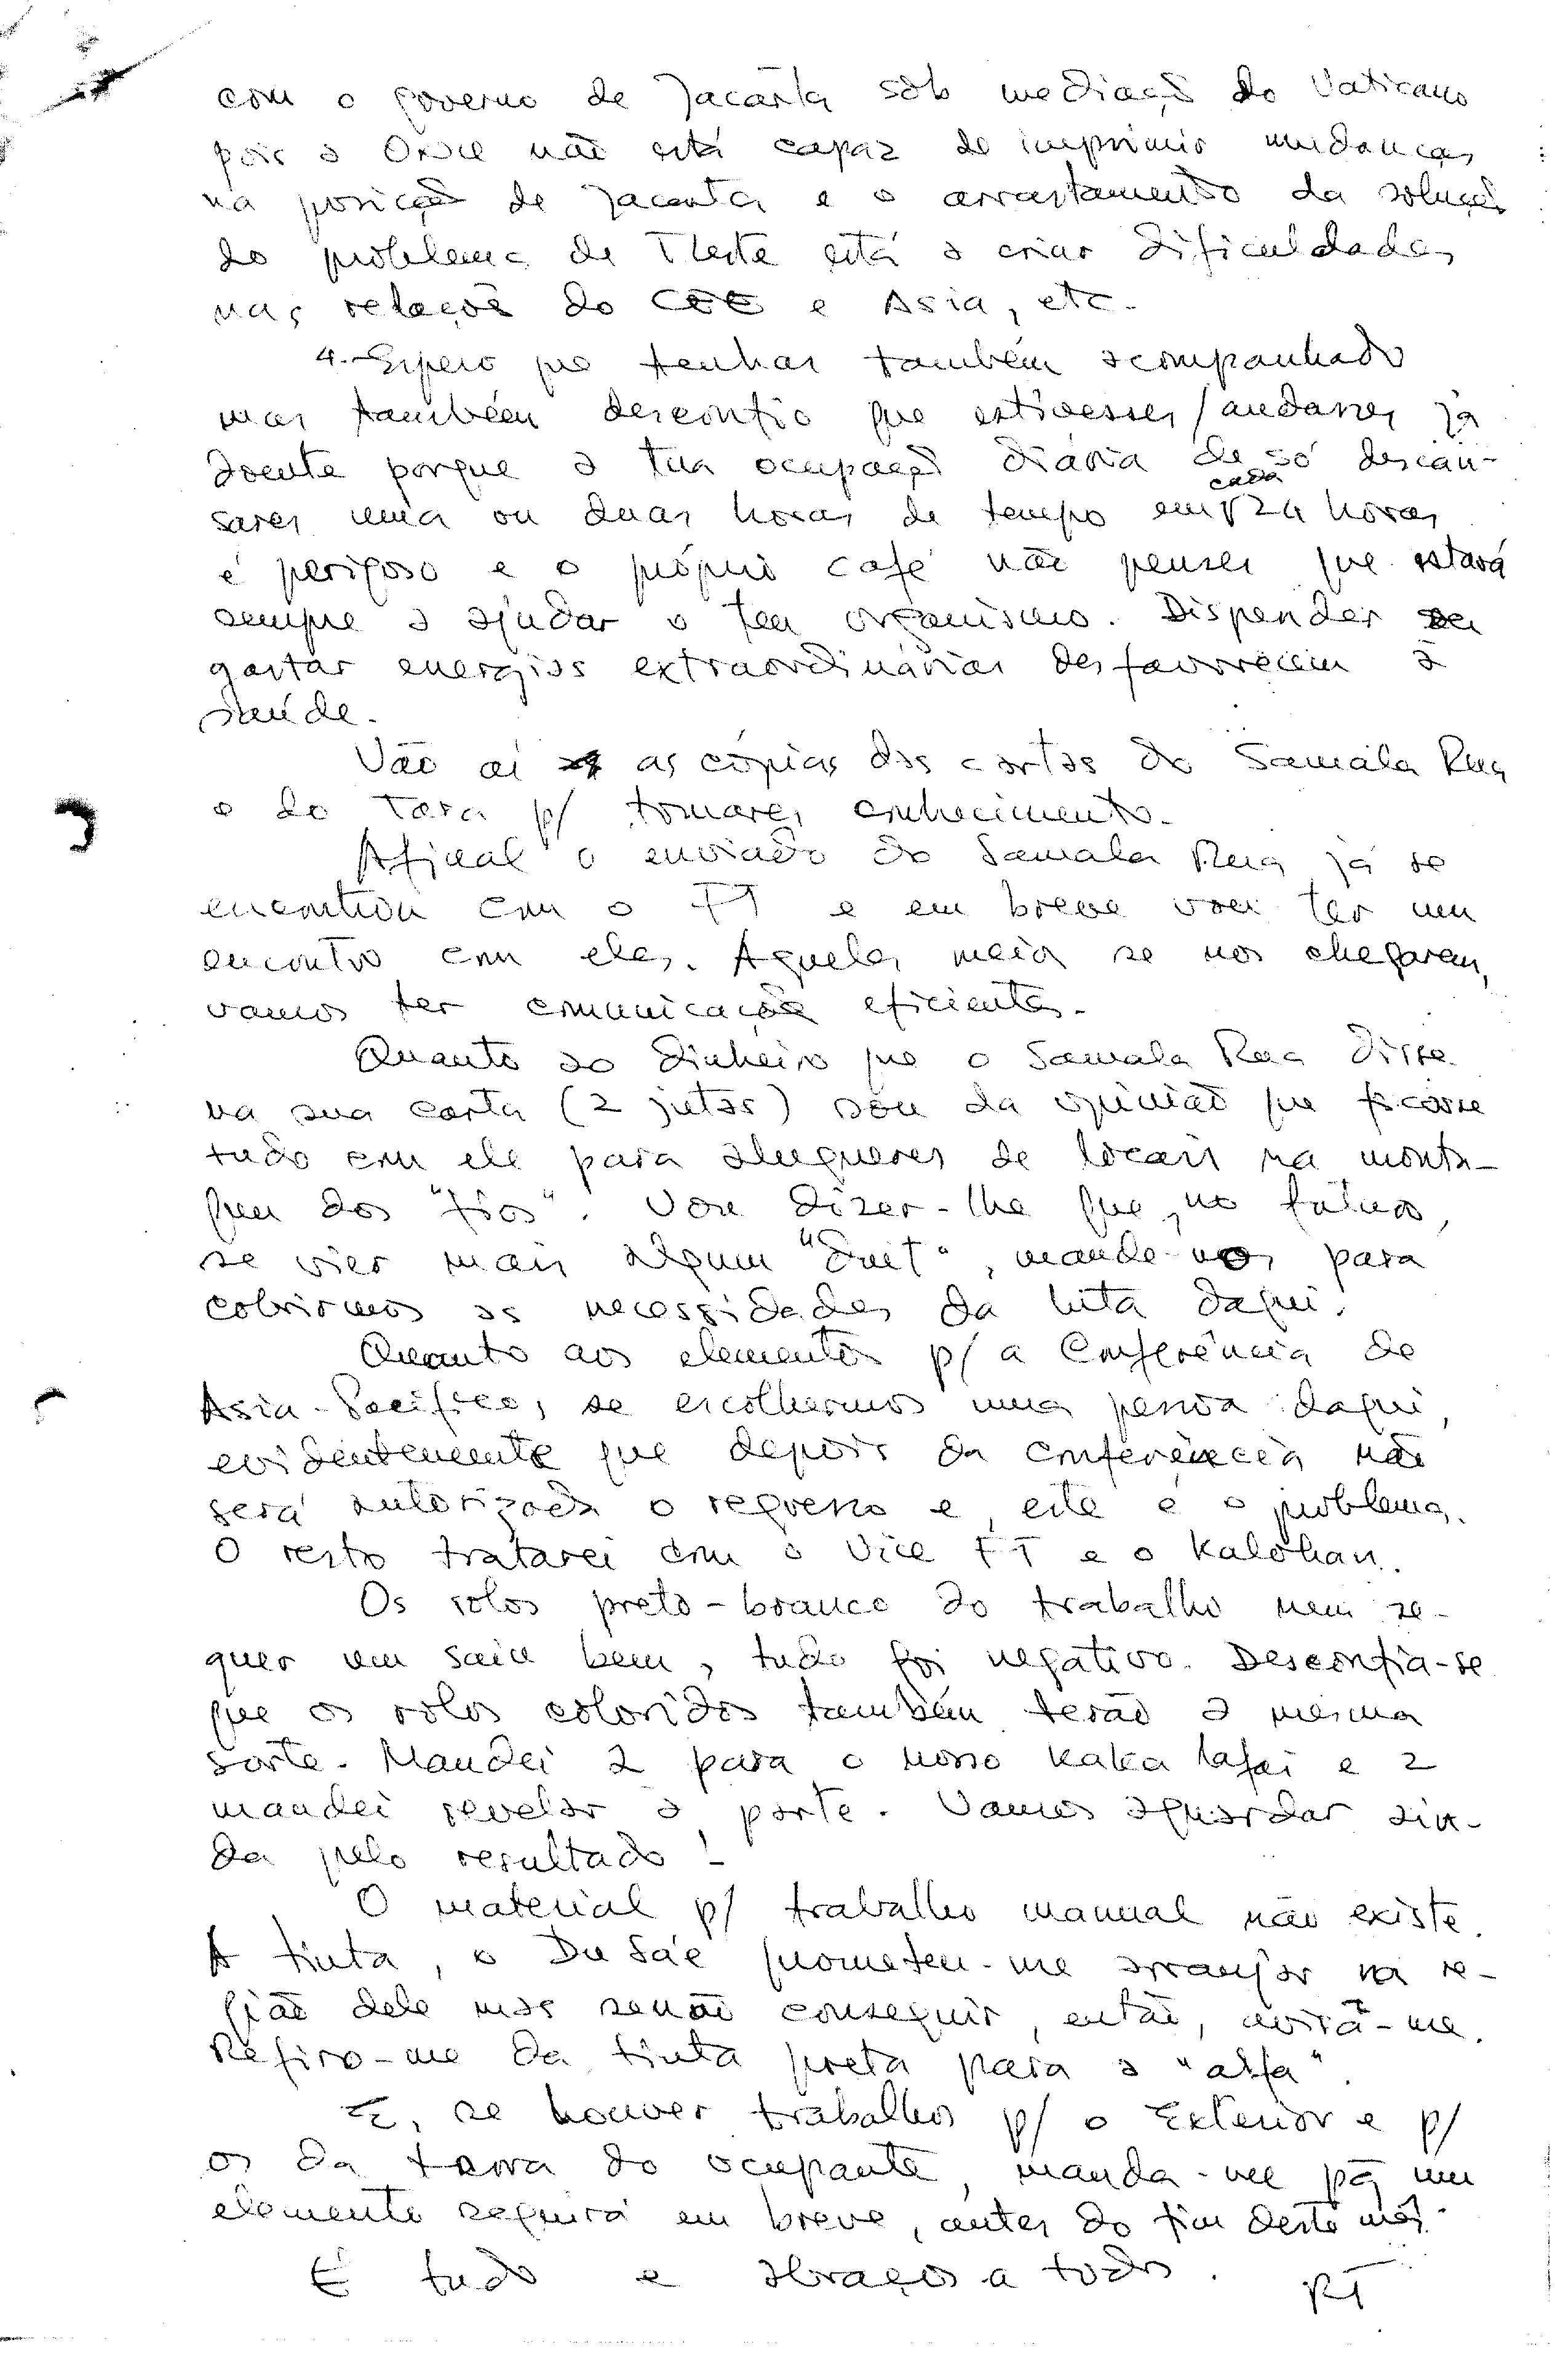 com o governo de Jacarta sob mediação do Vaticano
pois a não está capaz de imprimir mudanças
na posição de Jacarta e o arrastamento da solução
do problema de TLeste está a criar dificuldades
nas relações do CEE e Asia, etc.
4.- Espero que tenhas também acompanhado
mas também desconfio que estivesses/andasses já
doente porque a tua ocupação diária de só descan-
sares uma ou duas horas de tempo em cada 24 horas
é perigoso e o próprio café não penses que estará
sempre a ajudar o teu organismo. Dispender
gastar energias extraordinárias desfavorecem à
saúde.
Vão aí as cópias das cartas do Samala Rua
e do Tara p/ tomares conhecimento.
Afinal o enviado do Samala Rua já se
encontrou com o FT e em breve vou ter um
encontro com eles. Aqueles meios se nos chegarem,
vamos ter comunicação eficientes.
Quanto ao dinheiro que o Samala Rua disse
na sua carta (2 jutas) sou da opinião que ficasse
tudo com ele para alugueres de locais na monta-
gem dos "fios". Vou dizer-lhe que, no futuro,
se vier mais algum "duit", mande-nos para
cobrirmos as necessidades da luta daqui.
Quanto aos elementos p/ a Conferência de
Asia-Pacífico, se escolhermos uma pessoa daqui,
evidentemente que depois da conferência não
será autorizada o regresso e, este é o problema.
O resto tratarei com o Vice FT e o Kalohan.
Os rolos preto-branco do trabalho nem se-
quer um saiu bem, tudo foi negativo. Desconfia-se
que os rolos coloridos também terão a mesma
sorte. Mandei 2 para o nosso kaka lafai e 2
mandei revelar a parte. Vamos aguardar ain-
da pelo resultado!
O material p/ trabalho manual não existe.
A tinta, o Du Saé prometeu-me arranjar na re-
gião dele mas senão conseguir, então, avisa-me.
Refiro-me da tinta preta para a "alfa".
E, se houver trabalhos p/ o Exterior e p/
os da terra do ocupante, manda-me pq um
elemento seguirá em breve, antes do fim deste mês.
É tudo e abraços a todos. RT